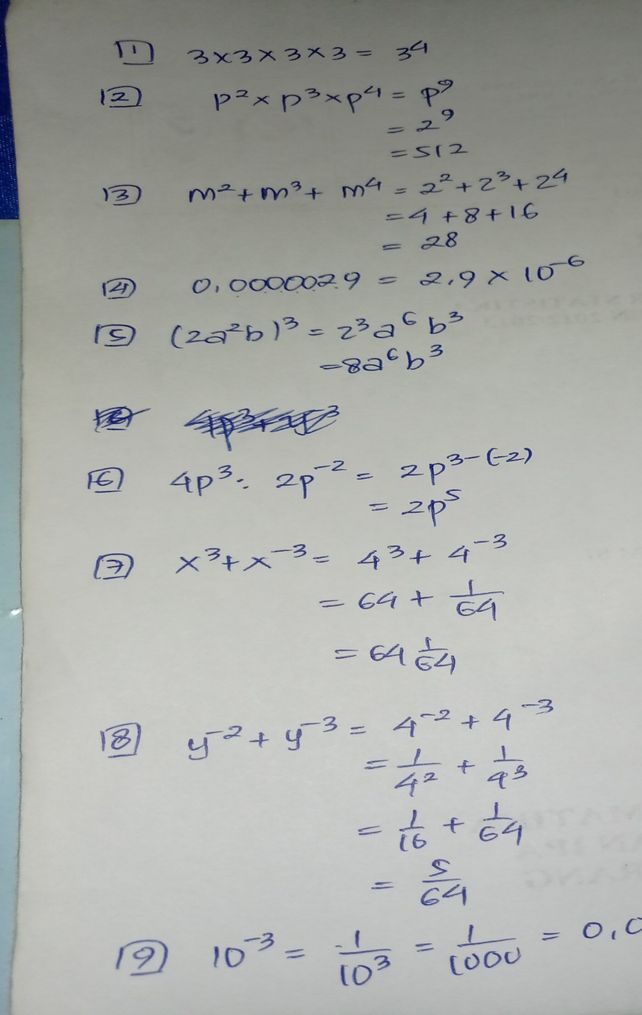 11 3×3×3×3 = 3⁴
12 p²×p³×p⁴ = p⁹
= 2⁹
= 512
13 m²+m³+m⁴ = 2²+2³+2⁴
= 4+8+16
= 28
14 0,0000029 = 2,9 × 10⁻⁶
15 (2a²b)³ = 2³a⁶b³
= 8a⁶b³
16 4p³ : 2p⁻² = 2p³⁻⁽⁻²⁾
= 2p⁵
17 x³+x⁻³ = 4³+4⁻³
= 64 + 1/64
= 64 1/64
18 y⁻²+y⁻³ = 4⁻²+4⁻³
= 1/4² + 1/4³
= 1/16 + 1/64
= 5/64
19 10⁻³ = 1/10³ = 1/1000 = 0,0